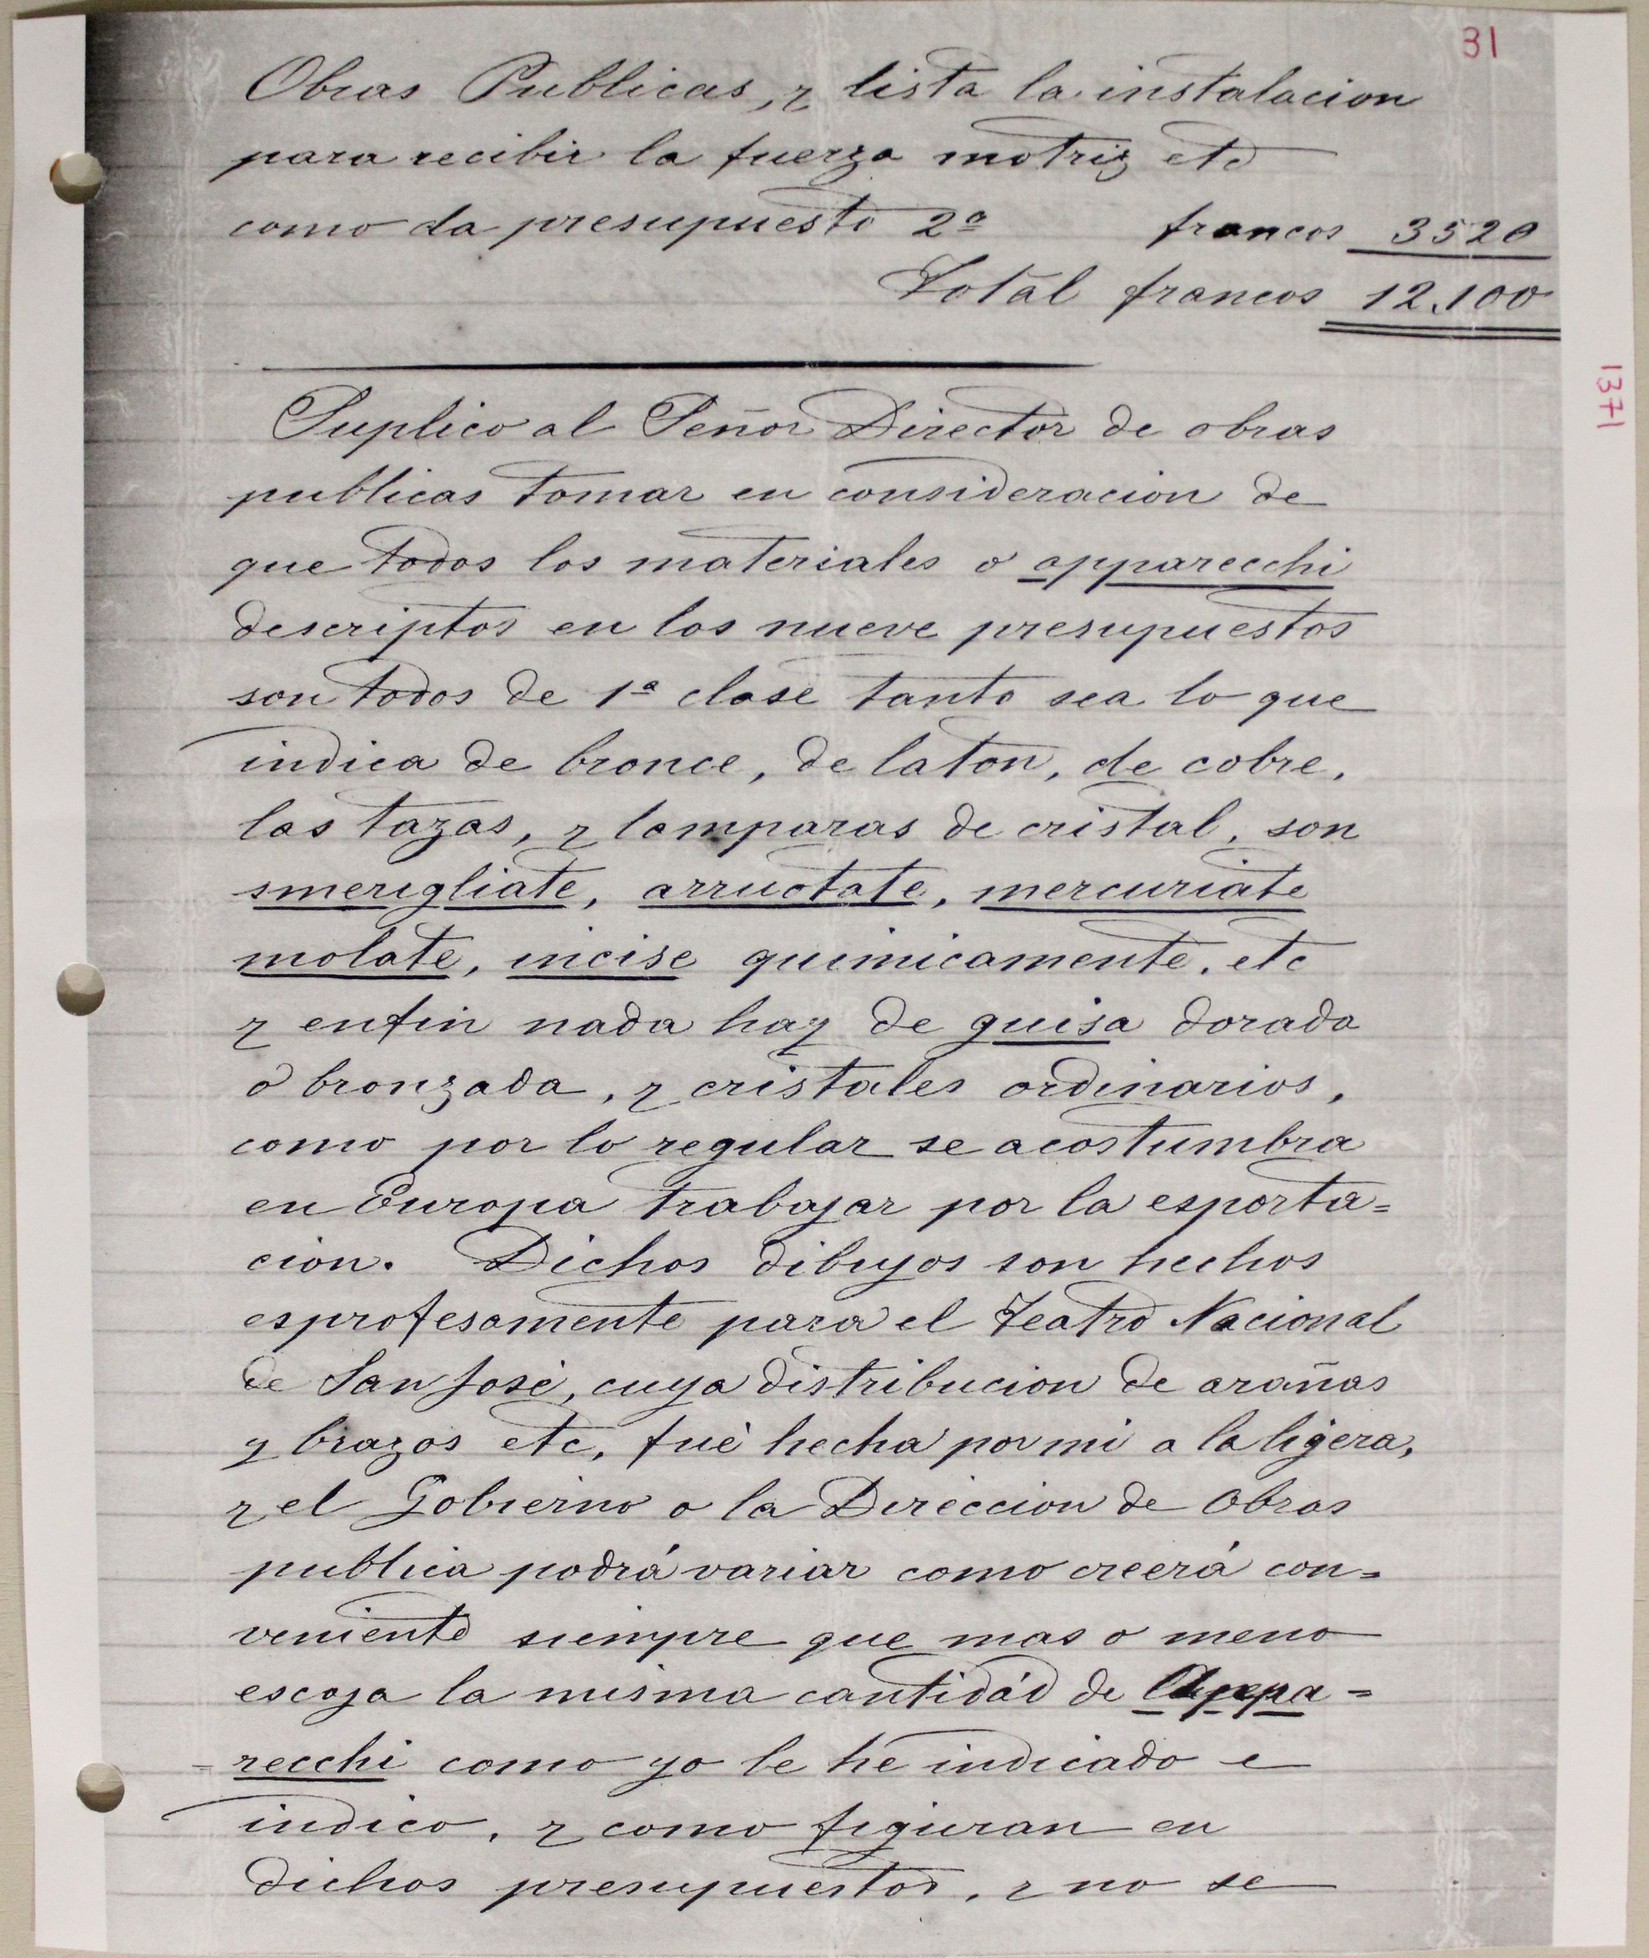 31
Obras Publicas, y lista la instalacion
para recibir la fuerza motriz etc
como da presupuesto 2º francos 3520
Total francos 12.100
1371
Suplico al Señor Director de obras
publicas tomar en consideracion de
que todos los materiales o apparecchi
descriptos en los nueve presupuestos
son todos de 1ª clase tanto sea lo que
indica de bronce, de laton, de cobre,
las tazas, y lamparas de cristal, son
smerigliate, arruotate, mercuriate
molate, incise quimicamente, etc
y enfin nada hay de guisa dorada
o bronzada, y cristales ordinarios,
como por lo regular se acostumbra
en Europa trabajar por la esporta=
cion. Dichos dibujos son hechos
esprofesamente para el Teatro Nacional
de San José, cuya distribucion de arañas
y brazos etc, fuè hecha por mi a la ligera,
y el Gobierno o la Direccion de Obras
publica podrá variar como creerá con=
veniente siempre que mas o meno
escoja la misma cantidád de Appa=
=recchi como yo le he indicado e
indico, y como figuran en
dichos presupuestos, y no se